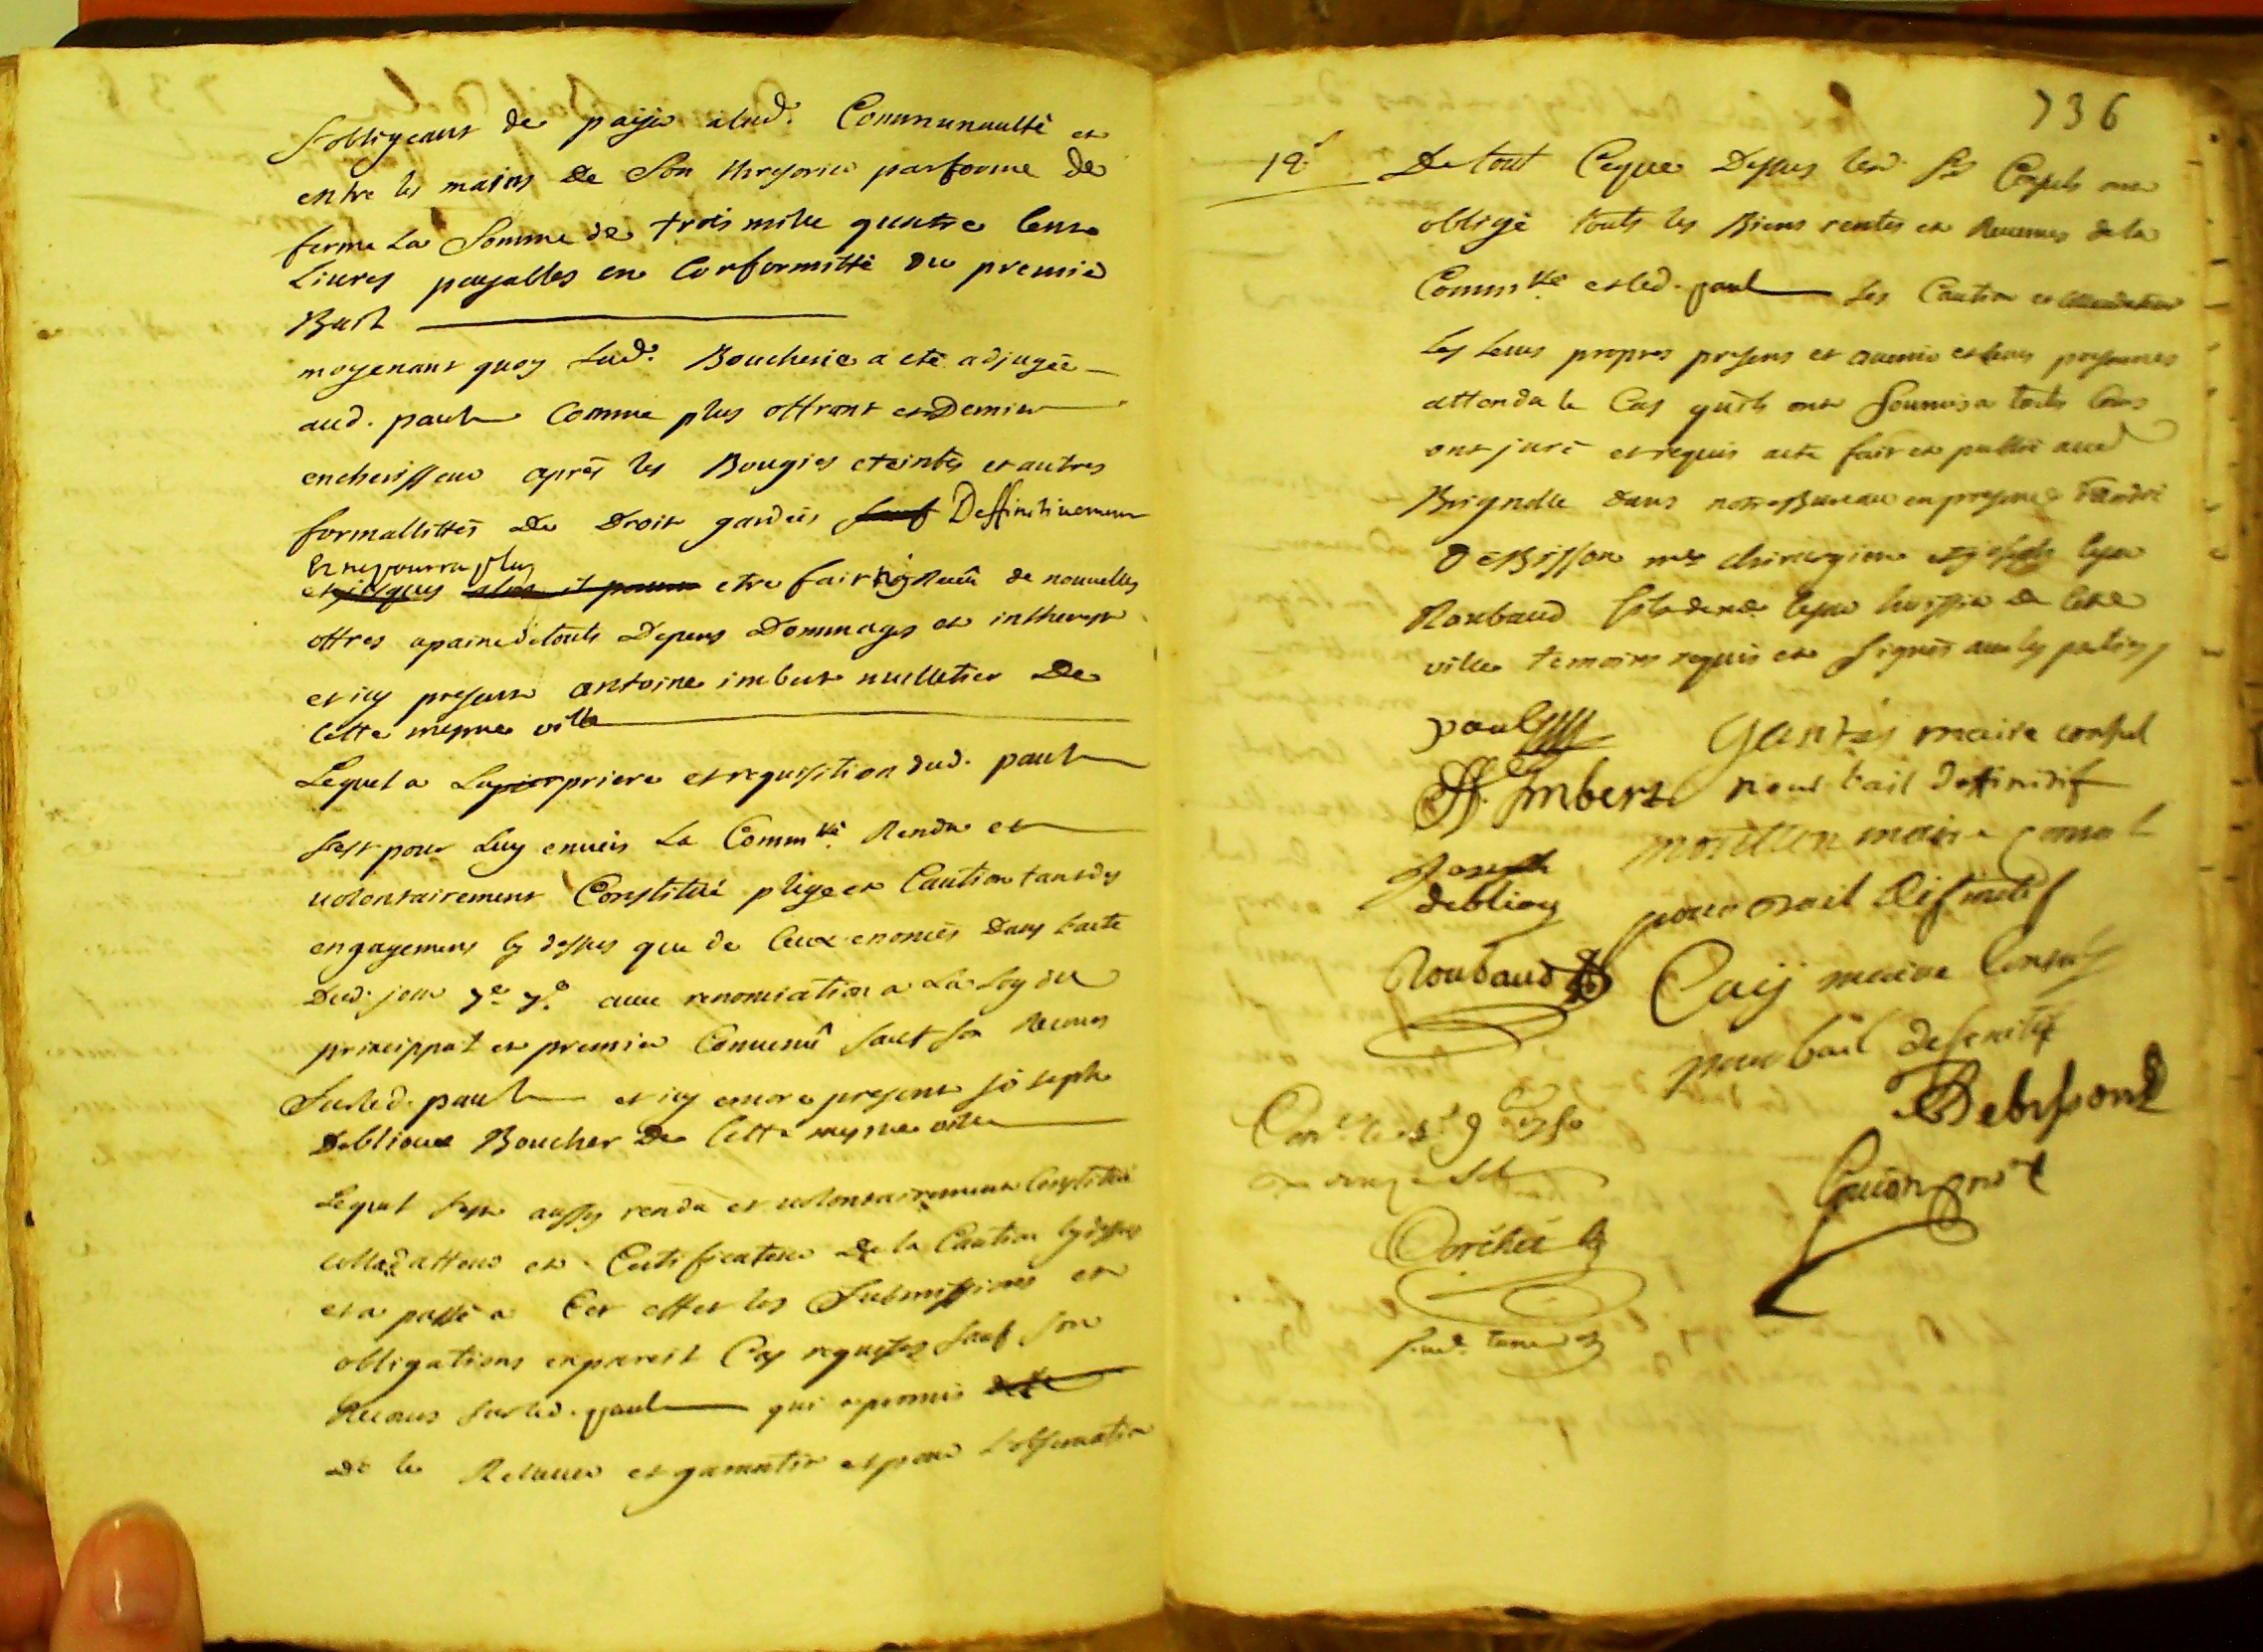 s'obligeant de paÿer alad. Communaulté et
entre les mains de Son thresorier par forme de
ferme La Somme de trois mille quatre Cens
Livres payables en Conformitté du premier
Bail
moyenant quoy Lad. Boucherie a eté adjugée
aud. paul Comme plus offrant et Dernier
encherisseur après les Bougies eteintes et autres
formallittés de Droit gardées sauf Deffinitivement
Et ne pourra plus
et jusques alors il pourra etre fait ny Receû de nouvelles
offres a paine de touts Depens Dommages et intherest
et icy present antoine imbert mulletier De
Cette mesme ville
Lequel a La prier priere et requisition dud. paul
s'est pour Luy envers La Commté. Rendu et
volontairement Constitué plege et Caution tant des
engagements cy dessus que de Ceux enoncés Dans l'acte
Dud. jour 7e. 7e. avec renonciation a La Loy du
principal et premier Convenû sauf son Recours
Sur led. paul et icy encore present joseph
Deblieux Boucher De Cette mesme ville
Lequel s'est aussy rendu et volontairement Constitué
collaudatteur et Certificateur de la Caution cy dessus
et a passé a Cet effet les Submissions et
obligations en pareil Cas requises sauf son
Recours sur led. paul qui a promis
de le Relever et garantir et pour l'observation
736
De tout Ceque Dessus lesd. Srs Consuls ont
obligé touts les Biens rentes et Revenus de la
Commté. et led. paul ses Caution et
les Leurs propres presens et avenir et leurs personnes
attendu le Cas qu'ils ont Soumis a touts Cours
ont juré et requis acte fait et publié aud
Brignolle dans notre Bureau en presence d'andré
DeBisson me chirurgien et joseph
Roubaud fils de huissier de Cette
ville temoins requis et Signés avec les parties
paul Gantés maire consul
Imbert pour bail deffinitif
maire consul
Joseph
deblieu
pour bail difinitif
Roubaud Caÿ maire Consul
pour bail defenitif
Debisson
Guion nore